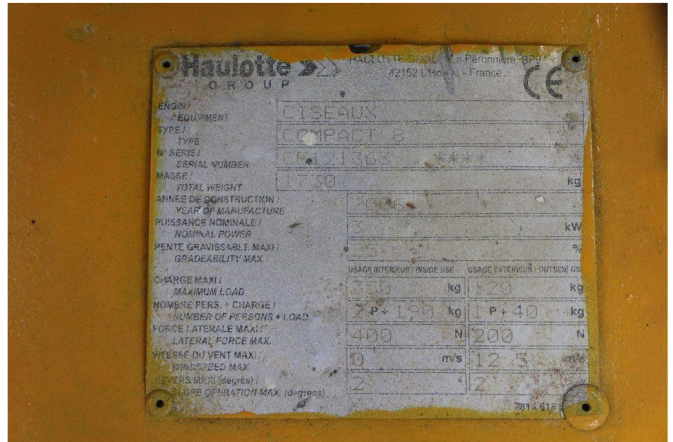 Haulotte
GROUP
HAULOTTE Péronnière BP9
42152 L'Horme - France
CE
ENGIN /
EQUIPMENT
CISEAUX
TYPE /
TYPE
COMPACT 8
N° SERIE /
SERIAL NUMBER
CE121363 ****
MASSE /
TOTAL WEIGHT
1730 kg
ANNEE DE CONSTRUCTION /
YEAR OF MANUFACTURE
2006
PUISSANCE NOMINALE /
NOMINAL POWER
3 kW
PENTE GRAVISSABLE MAXI /
GRADEABILITY MAX.
%
USAGE INTERIEUR / INSIDE USE USAGE EXTERIEUR / OUTSIDE USE
CHARGE MAXI /
MAXIMUM LOAD
350 kg 120 kg
NOMBRE PERS. + CHARGE /
NUMBER OF PERSONS + LOAD
2 P + 190 kg 1 P + 40 kg
FORCE LATERALE MAXI /
LATERAL FORCE MAX.
400 N 200 N
VITESSE DU VENT MAXI /
WINDSPEED MAX.
0 m/s 12.5 m/s
DEVERS MAXI (degrés) /
SLOPE OPERATION MAX. (degrees)
2 ° 2